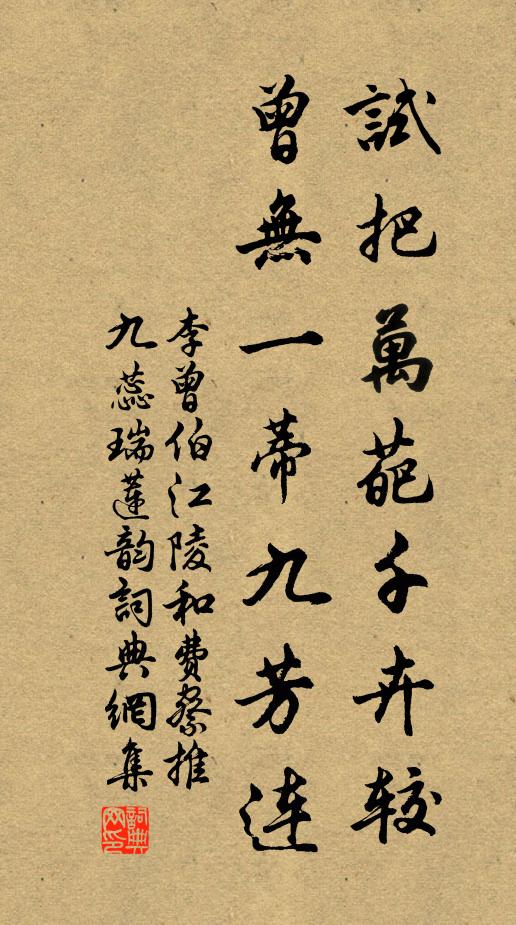 試把萬葩千卉较
曾無一蒂九芳连
李曾伯江陵和費察推
九蕊瑞蓮韵詞典網集
詞典网印